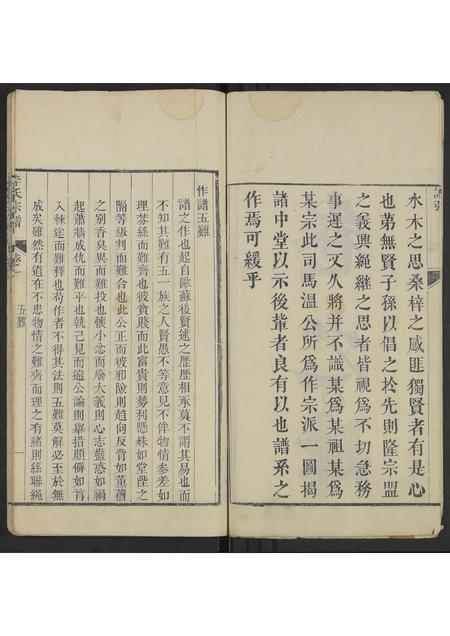 水木之思桑梓之感匪獨賢者有是心
也弟無賢子孫以倡之於先則隆宗盟
之義興繩繼之思者皆視爲不切急務
事遲之又久將并不識某爲某祖某爲
某宗此司馬温公所爲作宗派一圖揭
諸中堂以示後輩者良有以也譜系之
作焉可緩乎
作譜五難
譜之作也起自歐蘇後賢述之歷歷相承莫不謂其易也而
不知其難有五一族之人賢愚不等意見不侔物情參差如
理棼絲而難齊也彼貧賤而此富貴則勢利懸殊如堂陛之
隔等級判而難合也此公正而彼邪險則趨向反背如薰蕕
之別香臭異而難投也懷小忿而廢大義則心志蠱惑如禍
起蕭牆成仇而難平也執己見而違公論則舉措頗僻如盲
入棘途而難釋也苟作者不得其法則五難莫解必至於無
成矣雖然有道在不患物情之難齊而理之有緒則絲聯繩
氏宗譜
五難